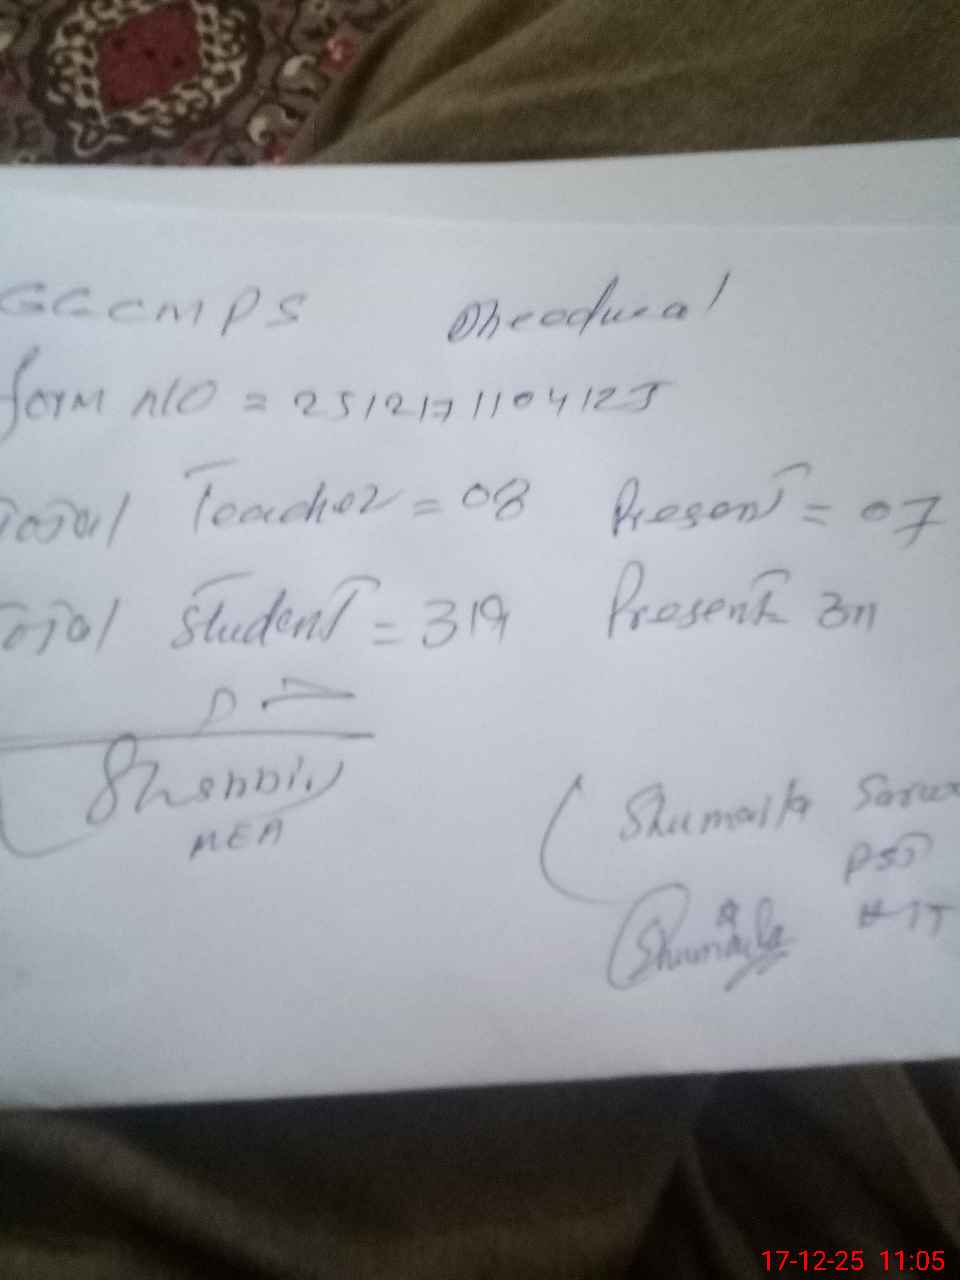 GGCMPS Dheedwal
form NO = 2512171104125
Total Teacher = 08 Present = 07
Total Student = 319 Present 311
MEA
Shumaila
PST
Shumaila
17-12-25 11:05